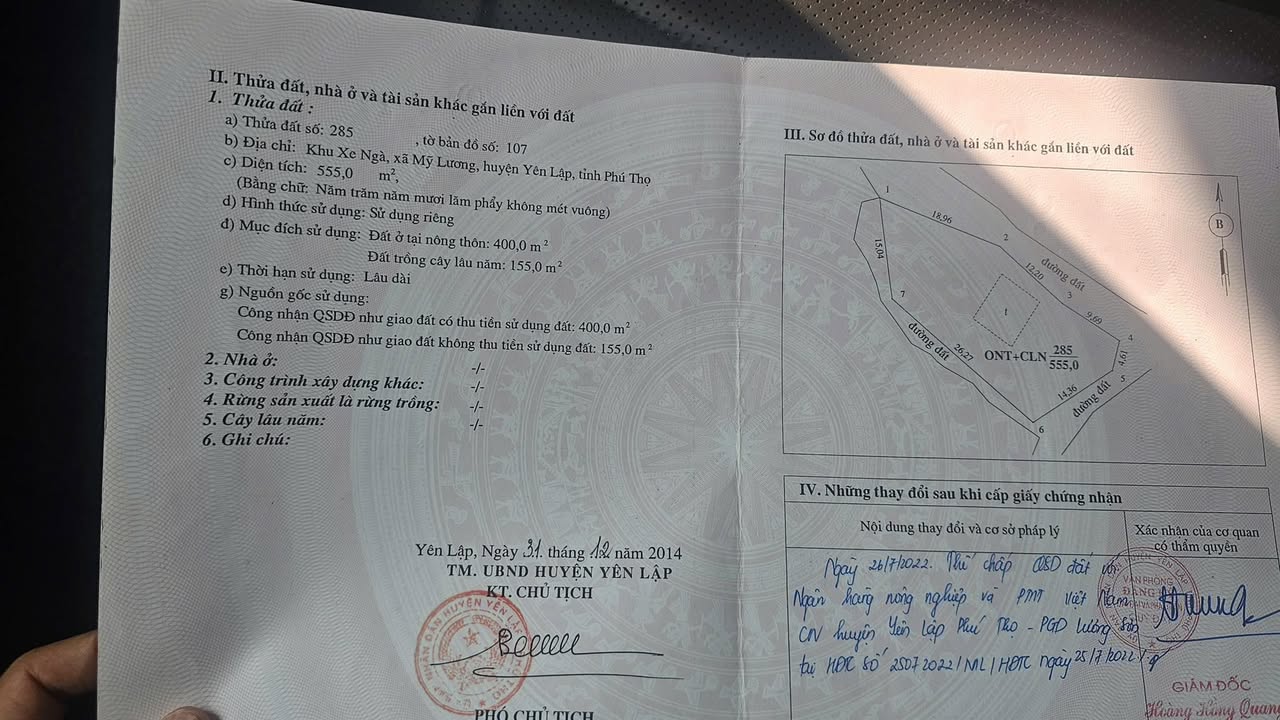 II. Thửa đất, nhà ở và tài sản khác gắn liền với đất
1. Thửa đất :
a) Thửa đất số: 285 , tờ bản đồ số: 107
b) Địa chỉ: Khu Xe Ngà, xã Mỹ Lương, huyện Yên Lập, tỉnh Phú Thọ
c) Diện tích: 555,0 m²,
(Bằng chữ: Năm trăm năm mươi lăm phẩy không mét vuông)
d) Hình thức sử dụng: Sử dụng riêng
đ) Mục đích sử dụng: Đất ở tại nông thôn: 400,0 m²
Đất trồng cây lâu năm: 155,0 m²
e) Thời hạn sử dụng: Lâu dài
g) Nguồn gốc sử dụng:
Công nhận QSDĐ như giao đất có thu tiền sử dụng đất: 400,0 m²
Công nhận QSDĐ như giao đất không thu tiền sử dụng đất: 155,0 m²
2. Nhà ở: -/-
3. Công trình xây dựng khác: -/-
4. Rừng sản xuất là rừng trồng: -/-
5. Cây lâu năm: -/-
6. Ghi chú:
Yên Lập, Ngày 31 tháng 12 năm 2014
TM. UBND HUYỆN YÊN LẬP
KT. CHỦ TỊCH
PHÓ CHỦ TỊCH
III. Sơ đồ thửa đất, nhà ở và tài sản khác gắn liền với đất
B
1
18,96
2
12,20
3
9,69
4
4,61
5
14,36
6
26,27
7
15,04
đường đất
đường đất
đường đất
t
ONT+CLN 285
555,0
IV. Những thay đổi sau khi cấp giấy chứng nhận
Nội dung thay đổi và cơ sở pháp lý
Xác nhận của cơ quan
có thẩm quyền
Ngày 26/7/2022. Thế chấp QSD đất với
Ngân hàng nông nghiệp và PTNT Việt Nam
CN huyện Yên Lập Phú Thọ - PGD Lương Sơn
tại HĐTC số 25072022/ML/HĐTC ngày 25/7/2022
VĂN PHÒNG
GIÁM ĐỐC
Hoàng Hồng Quang